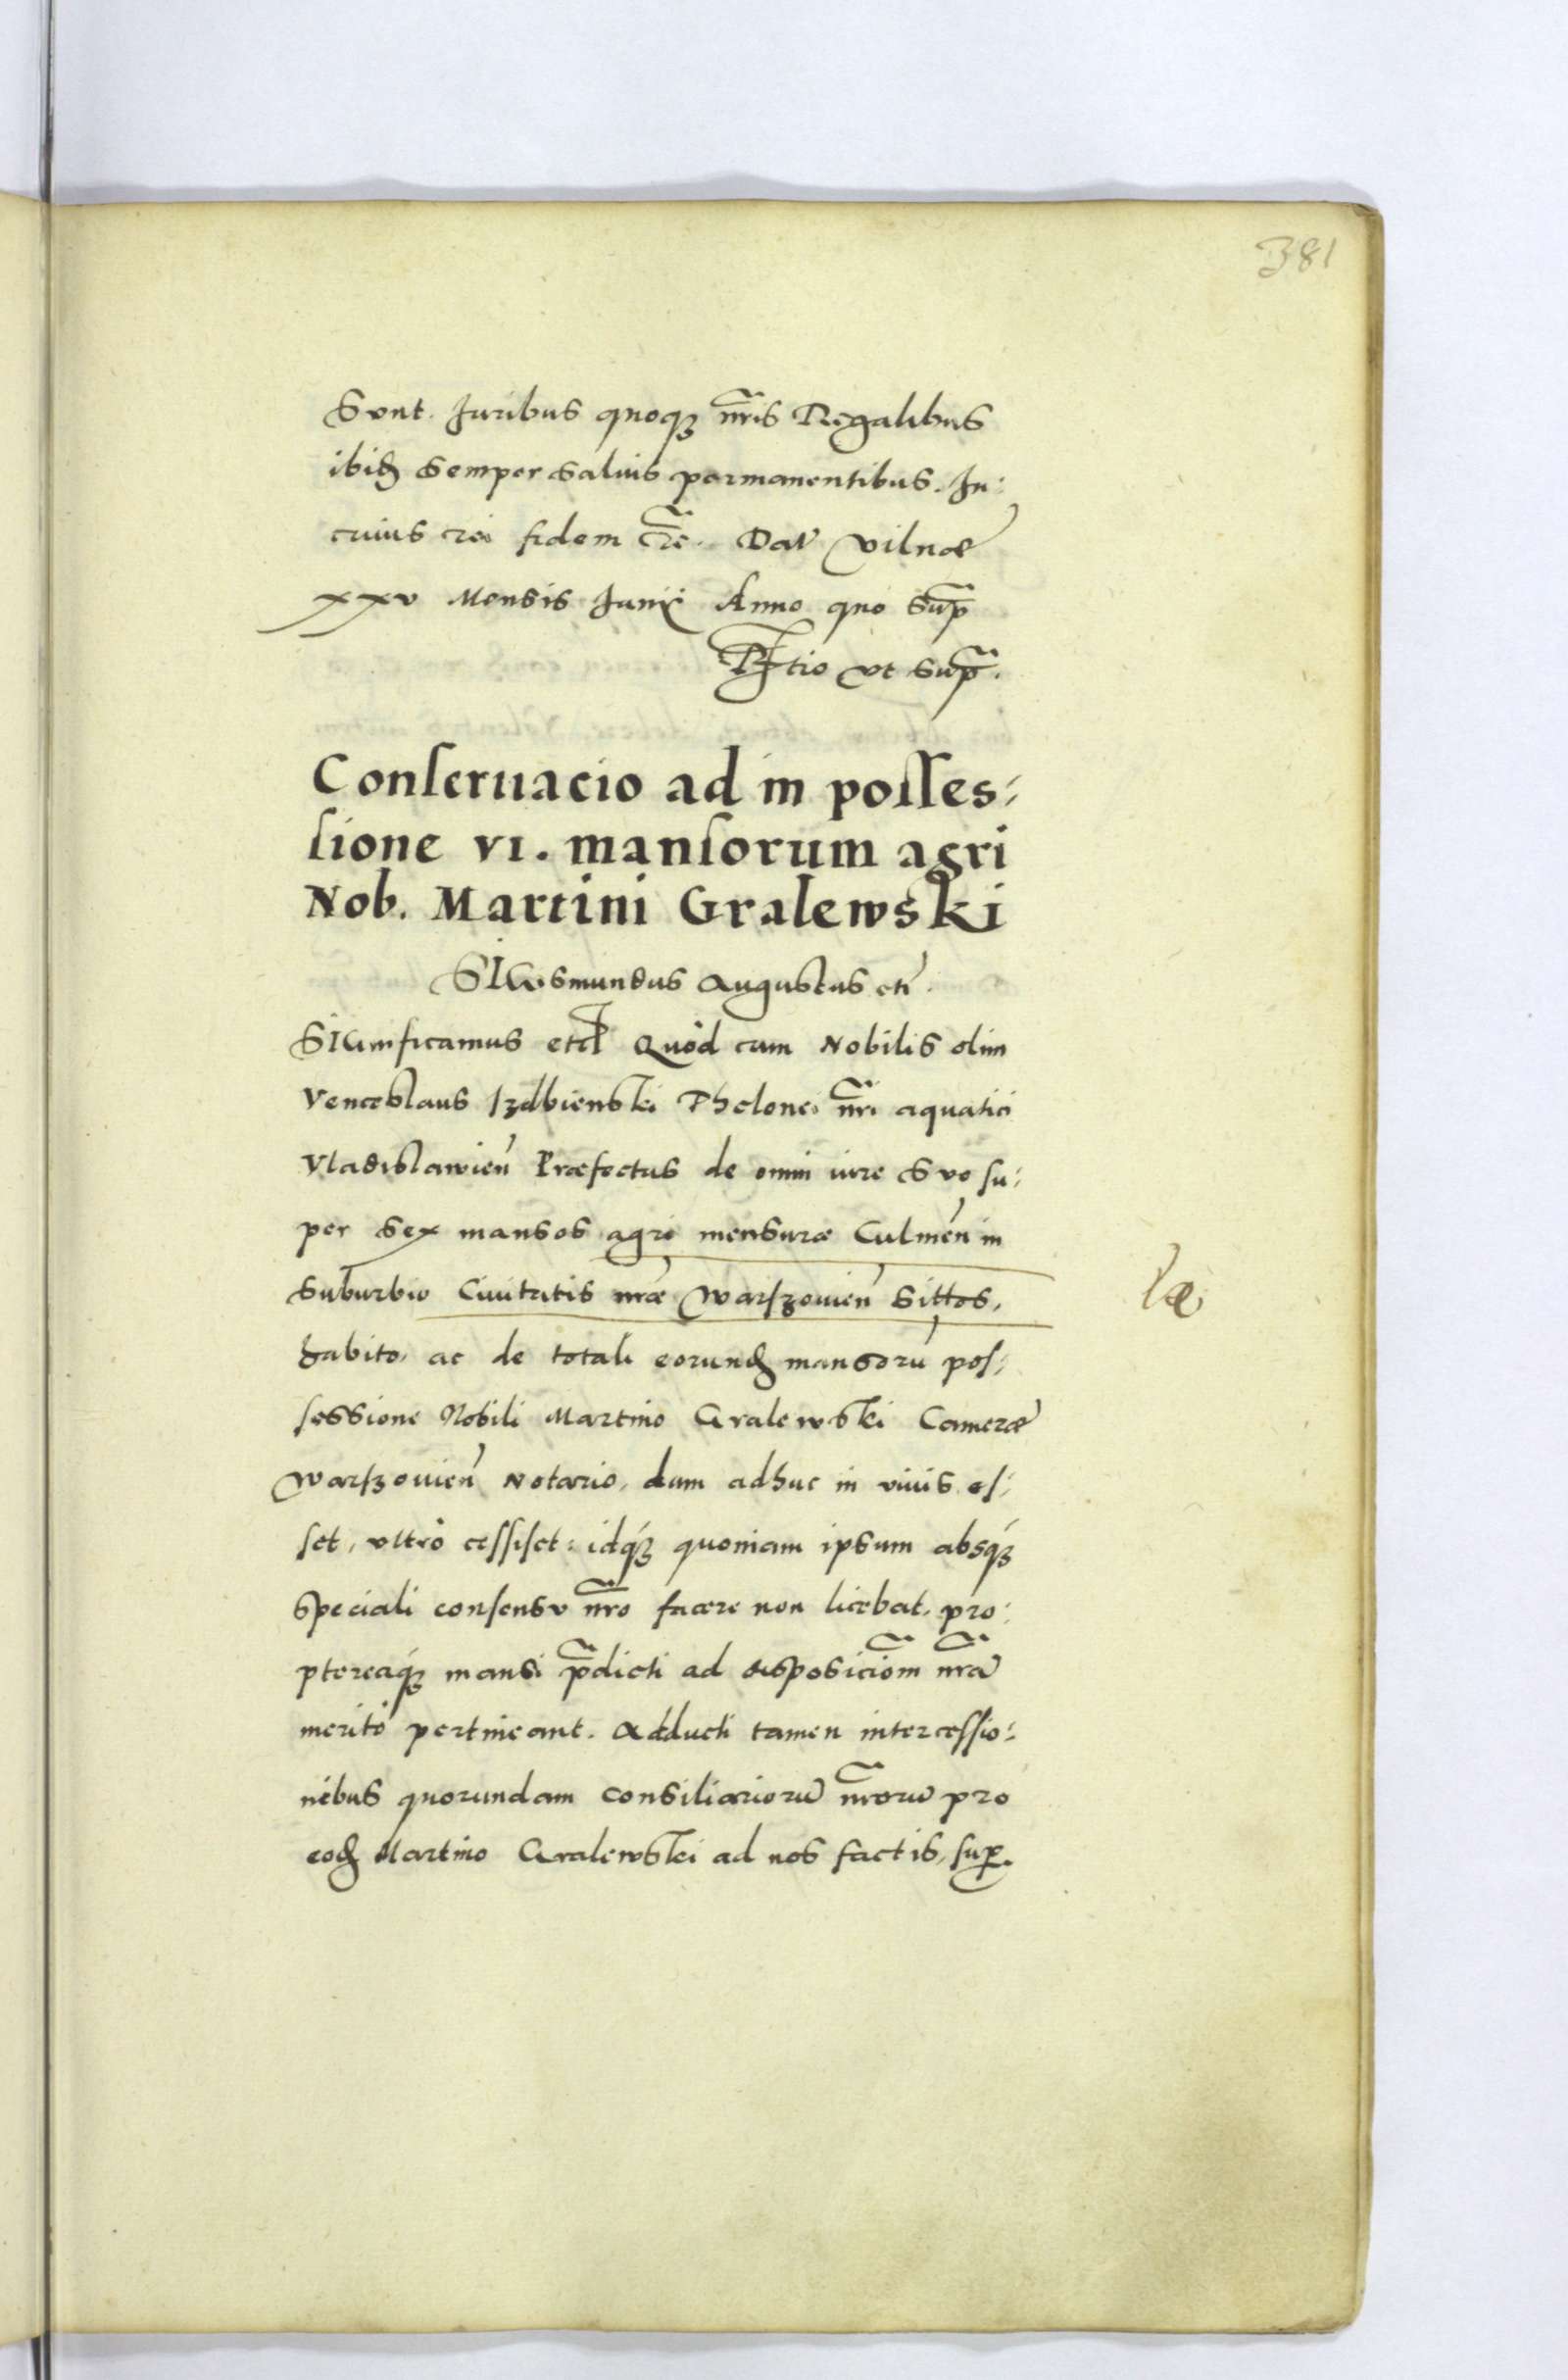 381
sunt. Iuribus quoqꝫ nr̃is Regalibus
ibiđ semper saluis permanentibus. In:
cuius rei fidem etc̃. Dat̃ Vilnæ
xxv Mensis Junij Anno quo sup̃
R̃tio vt sup̃.
Conseruacio ad in posses:
sione VI. mansorum agri
Nob. Martini Gralewski
SIGismundus Augustus etc̃.
SIGnificamus etc̃ Quòd cum Nobilis olim
Venceslaus Izdbienski Thelonei nr̃i aquatici
Vladislauien̄ Præfectus de omni iure suo su:
per sex mansos agri mensuræ Culmen̄ in
suburbio Ciuitatis nr̃æ Warszouien̄ sittos,
habito, ac de totali eorunđ mansorū pos:
sessione Nobili Martino Gralewski Cameræ
Warszouien̄ Notario, dum adhuc in viuis es:
set, vltrò cessiset: idq́ꝫ quoniam ipsum absq́ꝫ
speciali consensu nr̃o facere non licebat, pro:
ptereaq́ꝫ mansi p̃dicti ad disposiciom̃ nr̃ā
meritò pertineant. Adducti tamen intercessio:
nibus quorundam consiliariorū nr̃orū pro
eođ Martino Gralewski ad nos factis, suꝑ.